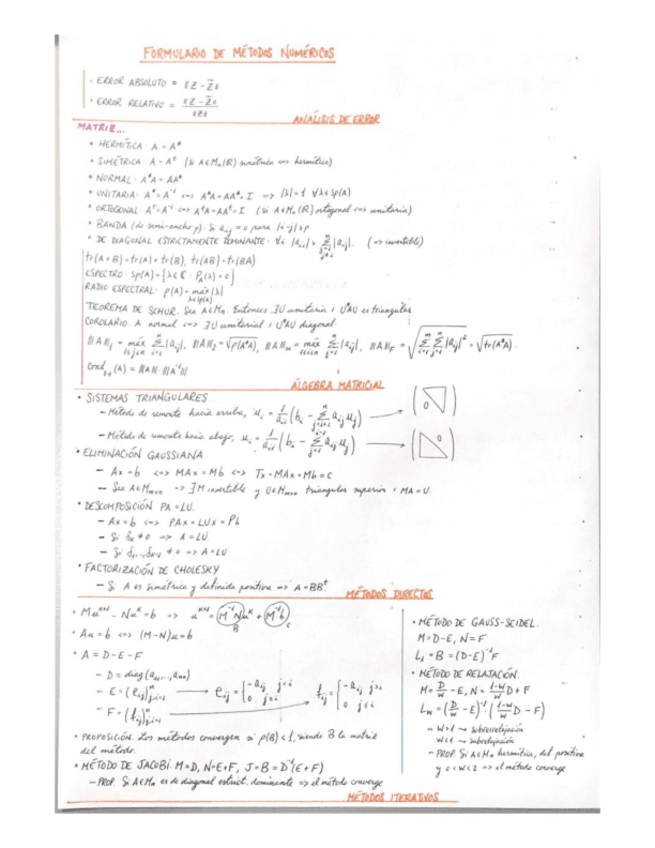 FORMULARIO DE MÉTODOS NUMÉRICOS
• ERROR ABSOLUTO = ‖Z - Z̃‖
• ERROR RELATIVO = ‖Z - Z̃‖ / ‖Z‖
ANÁLISIS DE ERROR
MATRIZ...
• HERMÍTICA: A = A*
• SIMÉTRICA: A = Aᵗ (Si A∈Mₙ(ℝ) simétrica <=> hermítica)
• NORMAL: A*A = AA*
• UNITARIA: A* = A⁻¹ <=> A*A = AA* = I => |λ| = 1 ∀λ∈sp(A)
• ORTOGONAL: Aᵗ = A⁻¹ <=> AᵗA = AAᵗ = I (Si A∈Mₙ(ℝ) ortogonal <=> unitaria)
• BANDA (de semi-ancho p): Si aᵢⱼ = 0 para |i-j| > p
• DE DIAGONAL ESTRICTAMENTE DOMINANTE: ∀i |aᵢᵢ| > Σ|aᵢⱼ|. (=> invertible)
tr(A+B) = tr(A) + tr(B), tr(AB) = tr(BA)
ESPECTRO: sp(A) = {λ∈ℂ : P_A(λ) = 0}
RADIO ESPECTRAL: ρ(A) = máx|λ| λ∈sp(A)
TEOREMA DE SCHUR. Sea A∈Mₙ. Entonces ∃U unitaria / U*AU es triangular
COROLARIO. A normal <=> ∃U unitaria / U*AU diagonal.
‖A‖₁ = máx Σ|aᵢⱼ|, ‖A‖₂ = √ρ(A*A), ‖A‖∞ = máx Σ|aᵢⱼ|, ‖A‖_F = √ΣΣ|aᵢⱼ|² = √tr(A*A).
(A) = ‖A‖·‖A⁻¹‖
ÁLGEBRA MATRICIAL
• SISTEMAS TRIANGULARES
– Método de remonte hacia arriba, uᵢ = 1/aᵢᵢ (bᵢ - Σ aᵢⱼuⱼ) → (0)
– Método de remonte hacia abajo, uᵢ = 1/aᵢᵢ (bᵢ - Σ aᵢⱼuⱼ) → (0)
• ELIMINACIÓN GAUSSIANA
– Ax = b <=> MAx = Mb <=> Tx = MAx = Mb = c
– Sea A∈Mₘₓₙ => ∃M invertible y U∈Mₘₓₙ triangular superior / MA = U.
• DESCOMPOSICIÓN PA = LU.
– Ax = b <=> PAx = LUx = Pb
– Si δₖ ≠ 0 => A = LU
– Si δ₁,...,δₙ₋₁ ≠ 0 => A = LU
• FACTORIZACIÓN DE CHOLESKY
– Si A es simétrica y definida positiva => A = BBᵗ.
MÉTODOS DIRECTOS
• Muᵏ⁺¹ - Nuᵏ = b => uᵏ⁺¹ = M⁻¹N uᵏ + M⁻¹b
B c
• Au = b <=> (M-N)u = b
• A = D - E - F
– D = diag(a₁₁,...,aₙₙ)
– E = (eᵢⱼ)ⁿᵢ,ⱼ₌₁ → eᵢⱼ = { -aᵢⱼ j<i 0 j≥i fᵢⱼ = { -aᵢⱼ j>i 0 j≤i
– F = (fᵢⱼ)ⁿᵢ,ⱼ₌₁
• PROPOSICIÓN. Los métodos convergen si ρ(B) < 1, siendo B la matriz
del método.
• MÉTODO DE JACOBI: M = D, N = E+F, J = B = D⁻¹(E+F)
– PROP. Si A∈Mₙ es de diagonal estrict. dominante => el método converge
• MÉTODO DE GAUSS-SEIDEL.
M = D-E, N = F
L₁ = B = (D-E)⁻¹F
• MÉTODO DE RELAJACIÓN.
M = D/w - E, N = (1-w)/w D + F
L_w = (D/w - E)⁻¹·((1-w)/w D - F)
– w>1 → sobrerrelajación
w<1 → subrelajación
– PROP. Si A∈Mₙ hermítica, def. positiva
y 0<w<2 => el método converge
MÉTODOS ITERATIVOS